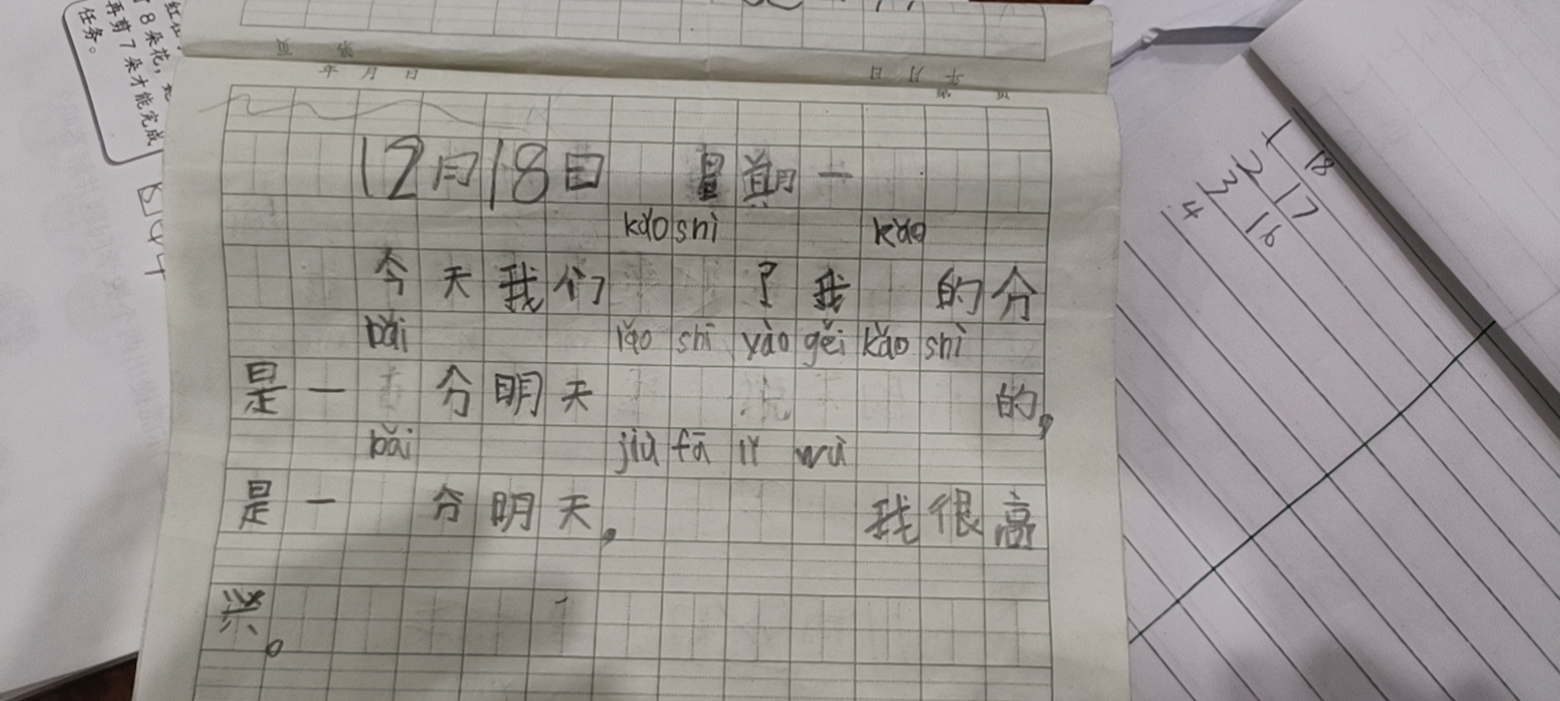 8朵花，
再剪7朵才能完成
任务。
页
年 月 日
年 月 日
第 页
12月18日 星期一
kǎo shì kǎo
今天我们 了我 的分
bǎi lǎo shī yào gěi kǎo shì
是一 分明天 的,
bǎi jiù fā lǐ wù
是一 分明天, 我很高
兴。
1 18
2 17
3 16
4